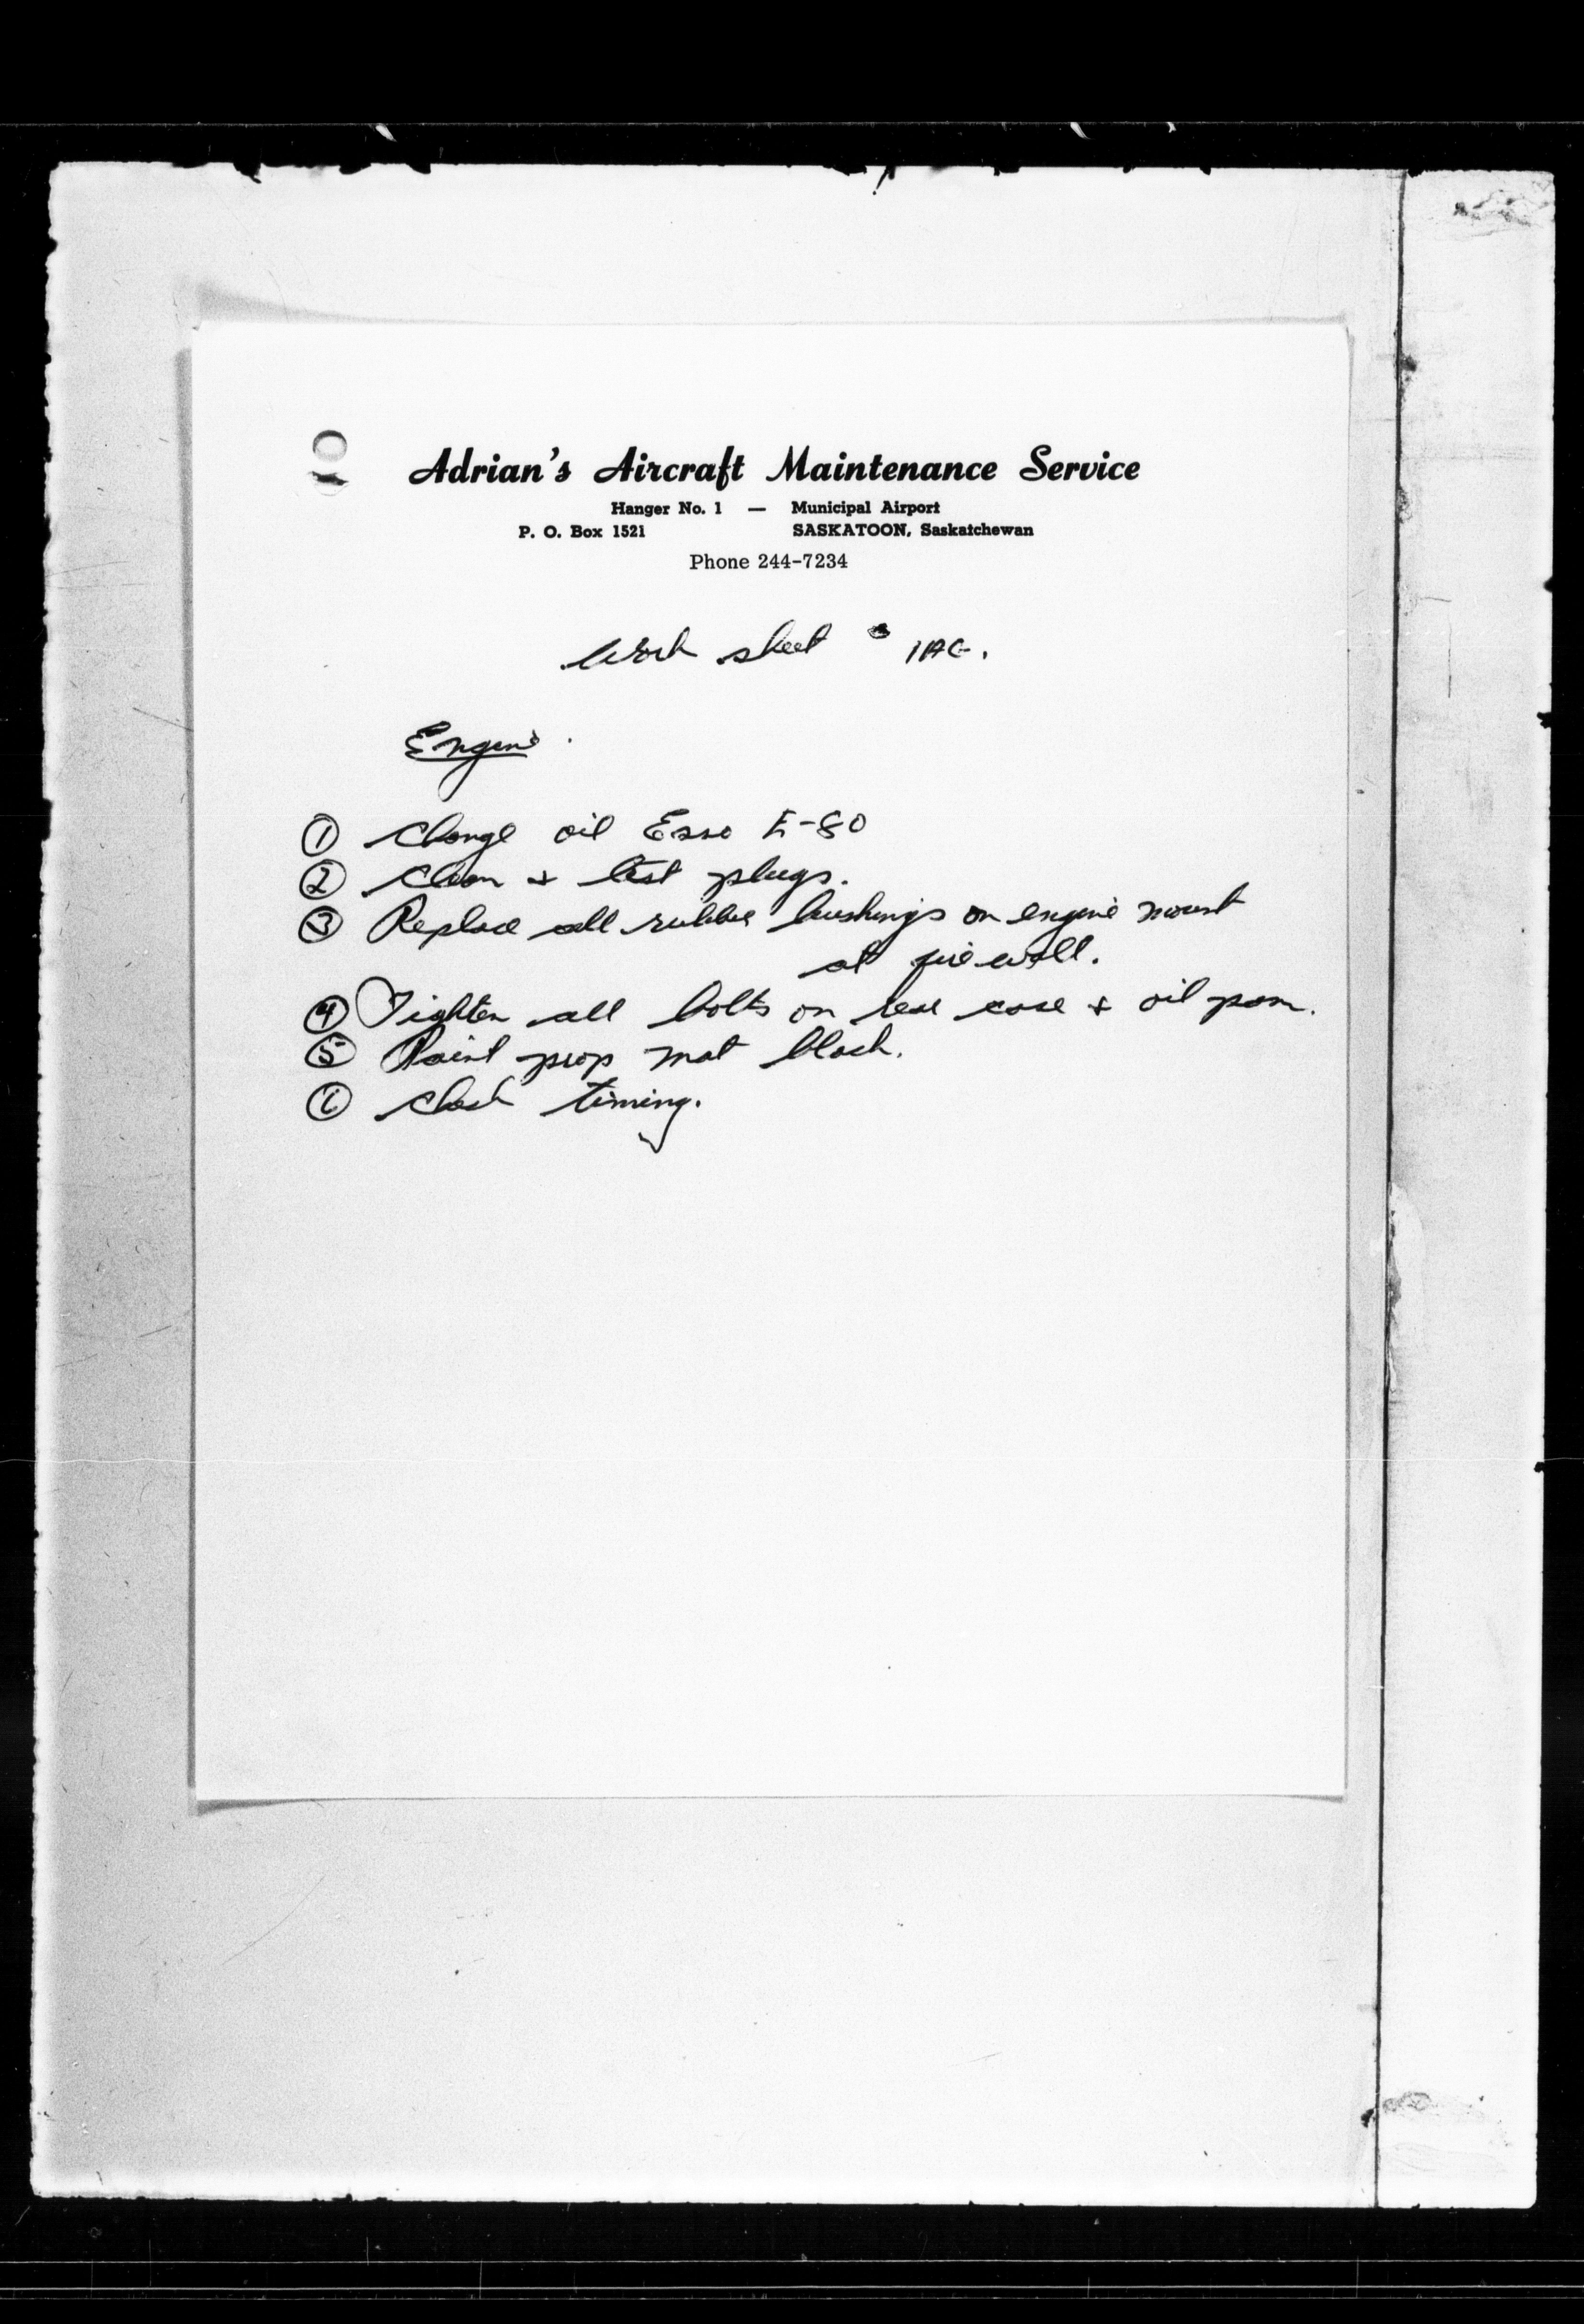 Adrian's Aircraft Maintenance Service
Hanger No. 1 — Municipal Airport
P. O. Box 1521 SASKATOON, Saskatchewan
Phone 244-7234
Work sheet
Engine.
① Change oil Esso E-80
② Clean + test plugs.
③ Replace all rubber bushings on engine mount
at firewall.
④ Tighten all bolts on rear case + oil pan.
⑤ Paint prop mat black.
⑥ Check timing.